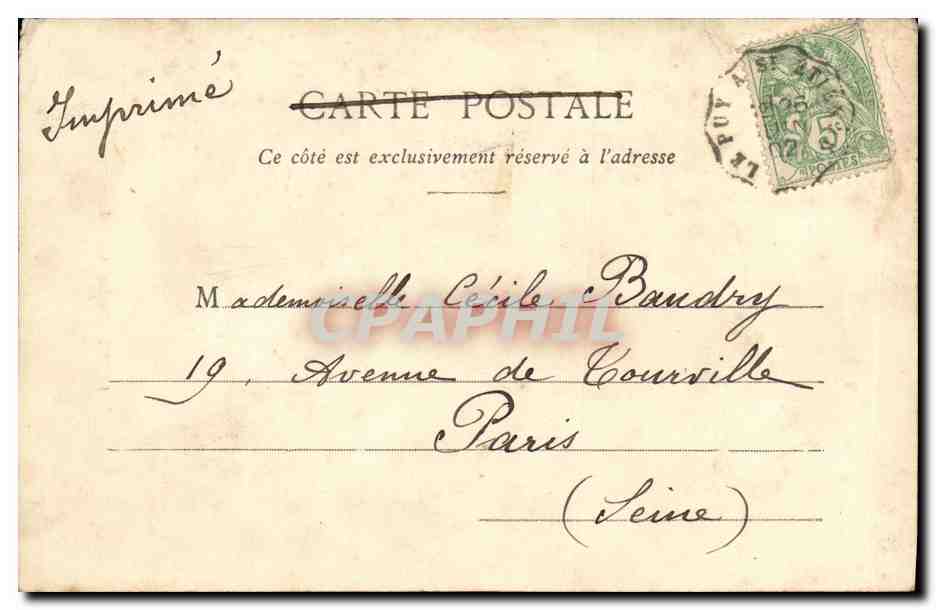 Imprimé
CARTE POSTALE
Ce côté est exclusivement réservé à l'adresse
LE PUY A ST
5
POSTES
Mademoiselle Cécile Baudry
CPAPHIL
19, Avenue de Tourville
Paris
(Seine)